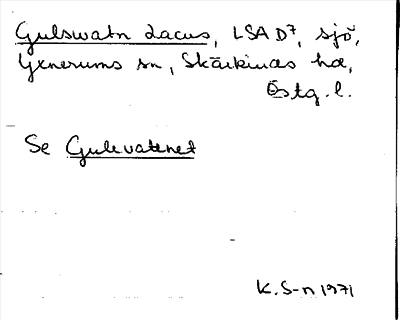 Gulswatn Lacus, LSA D⁷, sjö,
Yxnerums sn, Skärkinds hd,
Östg. l.
Se Gulevattnet
K. S-n 1971